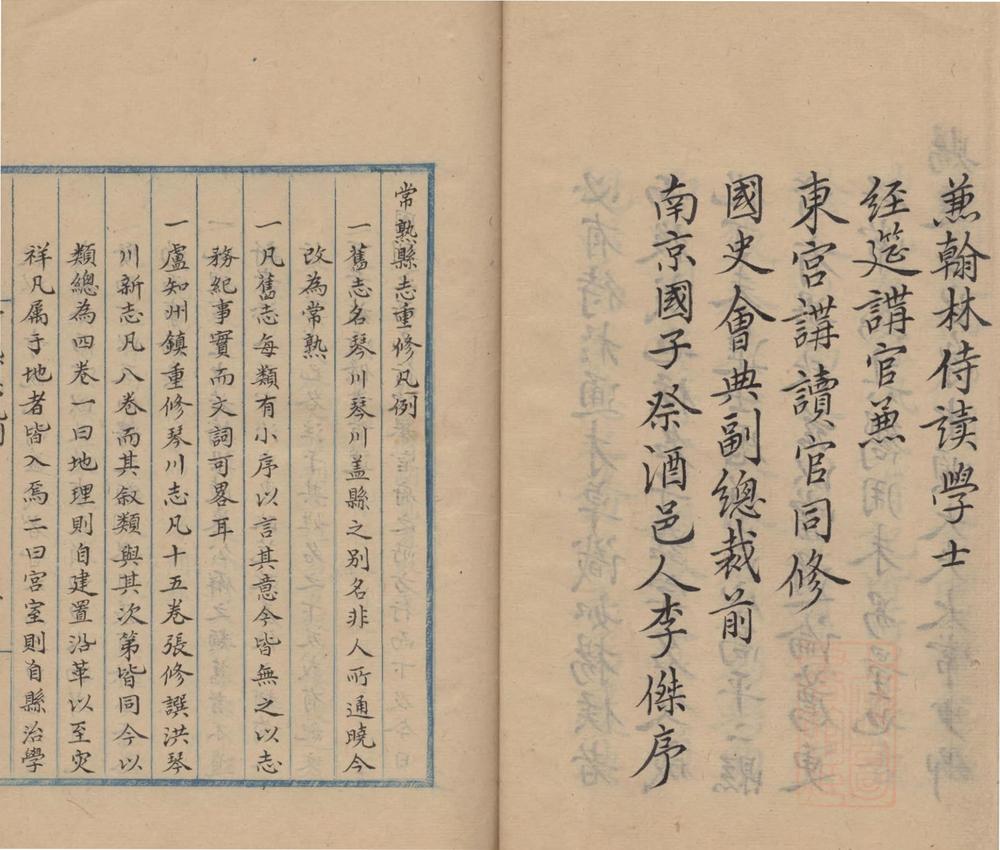 兼翰林侍读學士
經筵講官兼
東宮講讀官同修
國史會典副總裁前
南京國子祭酒邑人李傑序
常熟縣志重修凡例
一舊志名琴川琴川盖縣之别名非人所通曉今
改為常熟
一凡舊志每類有小序以言其意今皆無之以志
務紀事實而文詞可畧耳
一盧知州鎮重修琴川志凡十五卷張修譔洪琴
川新志凡八卷而其叙類與其次第皆同今以
類總為四卷一曰地理則自建置沿革以至灾
祥凡属于地者皆入焉二曰宮室則自縣治學